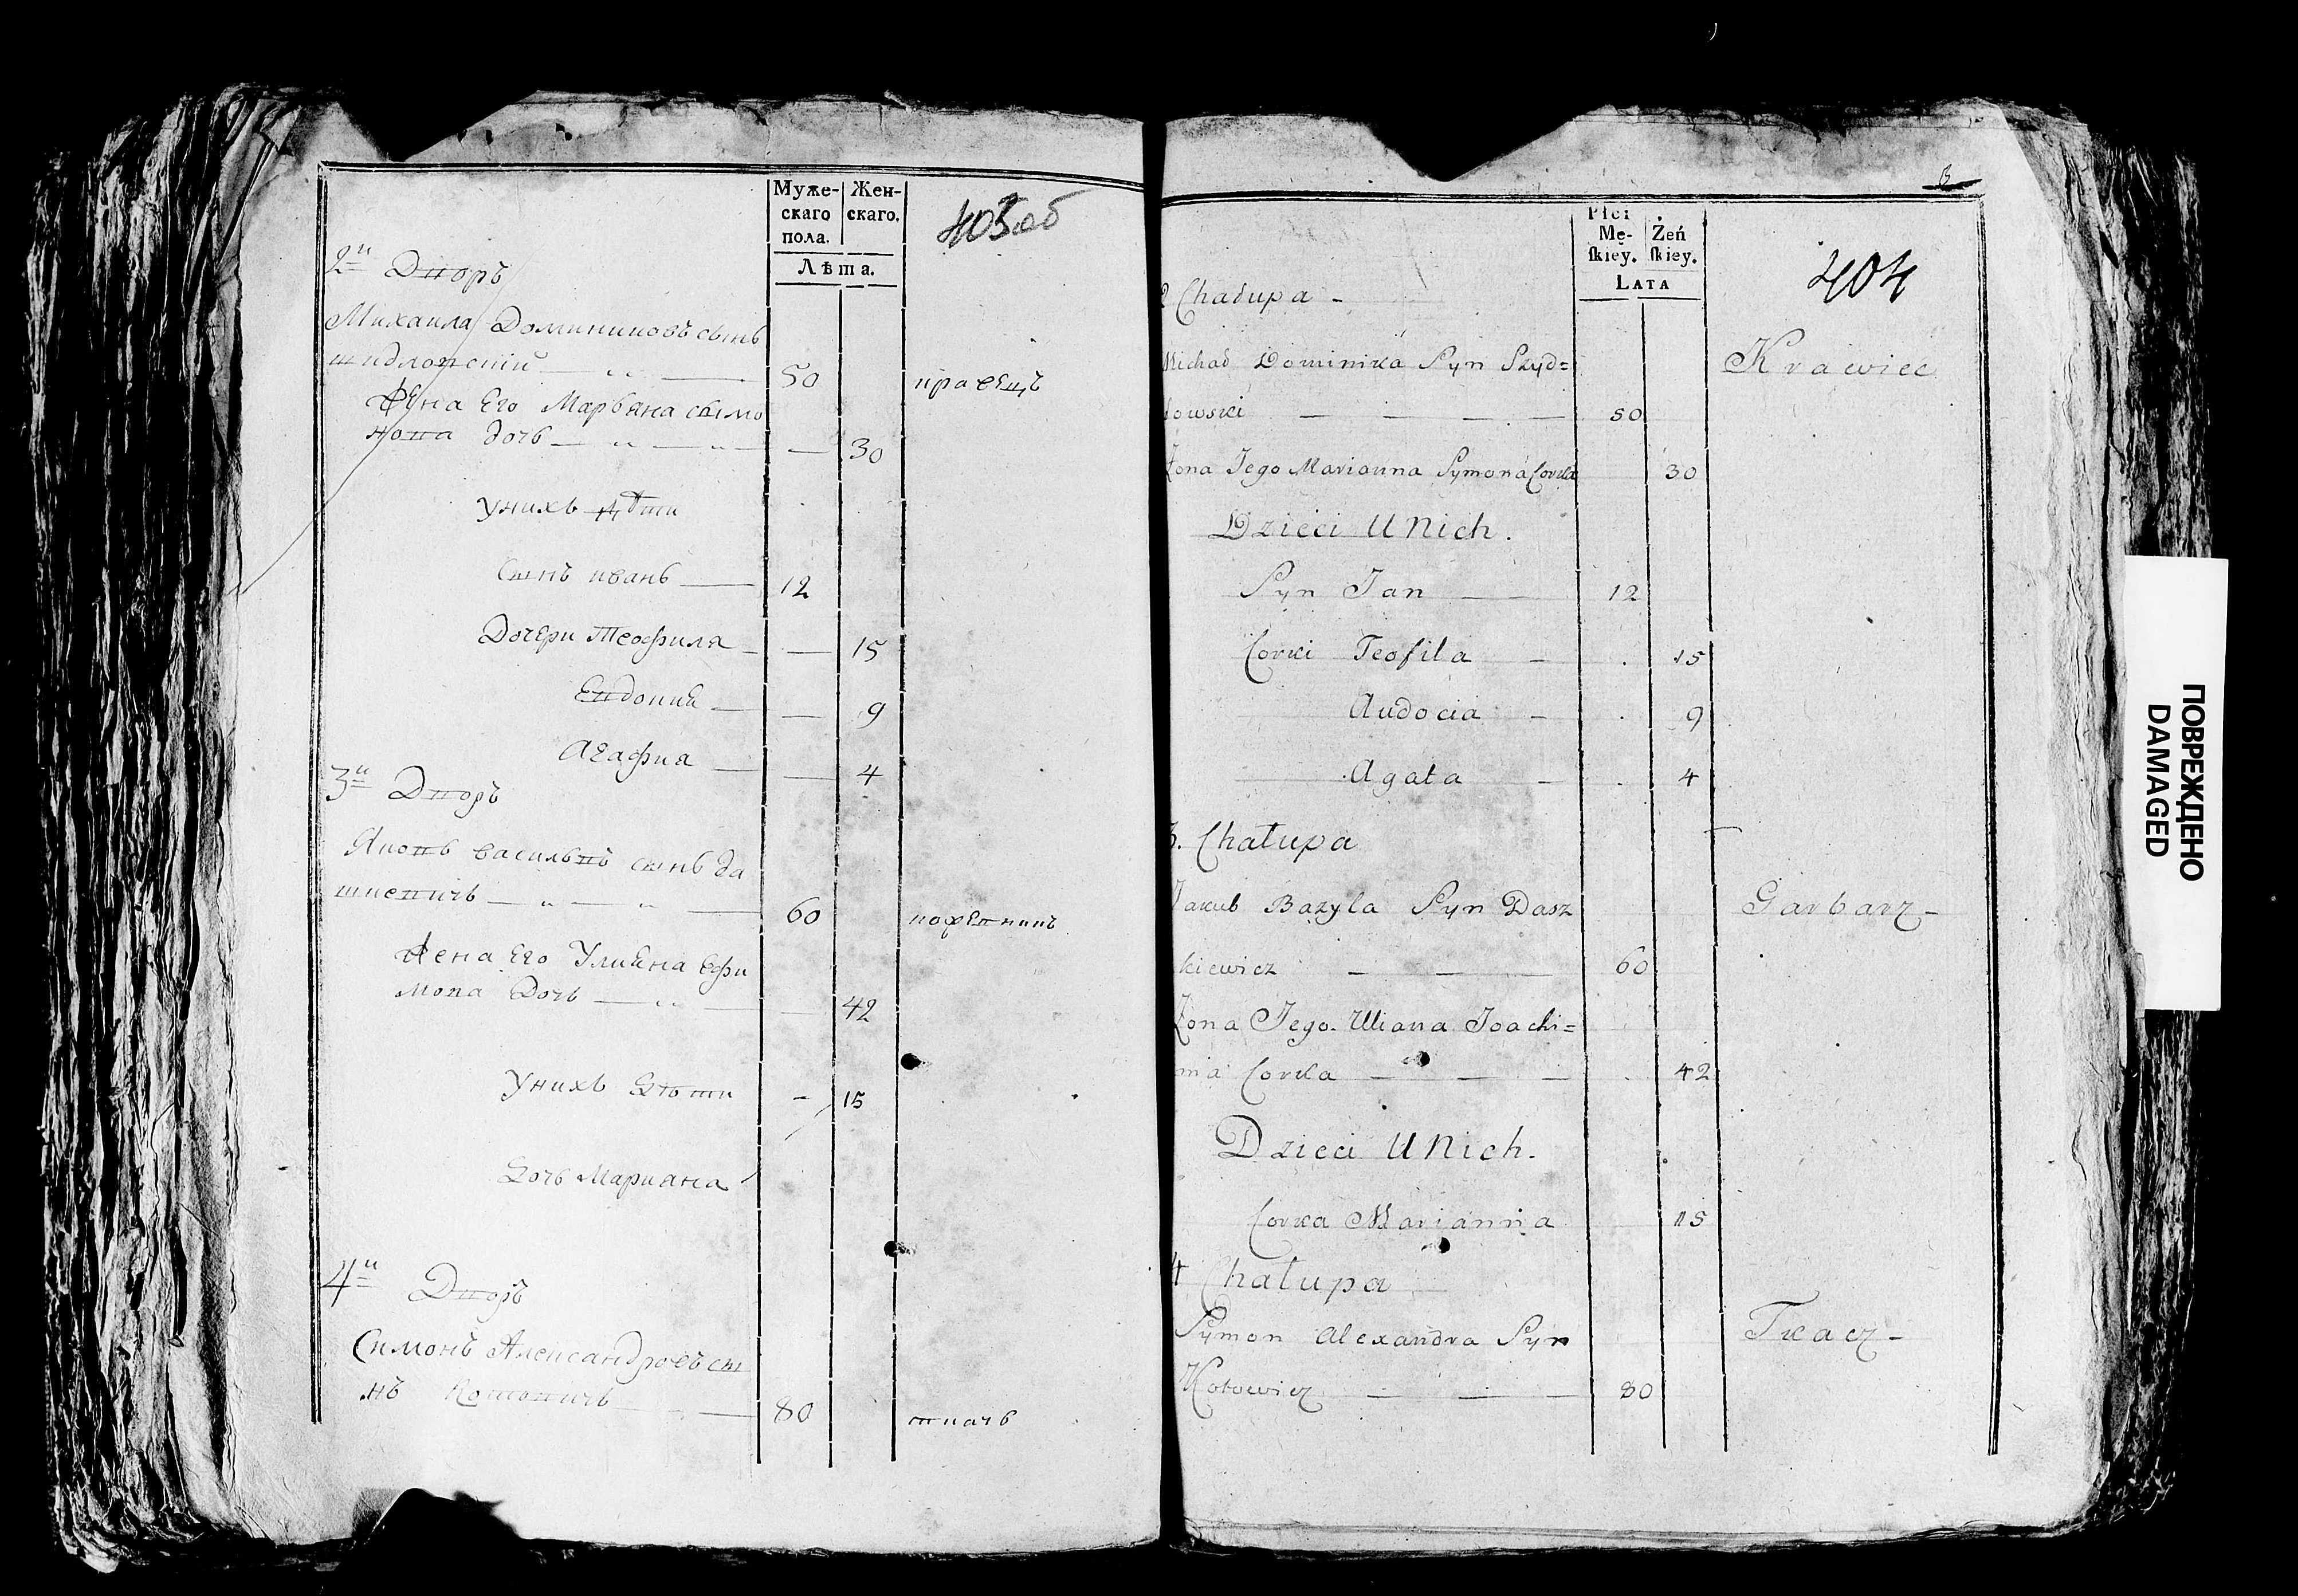 Муже-
скаго
пола.
Жен-
скаго.
Лѣта.
403об
2й Дворъ
Михаила Доминиковъ сынъ
шидловский
50
кравецъ
Жена Его Марьяна сымо
нова дочь
30
Унихъ дѣти
Сынъ иванъ
12
Дочери Теофиля
15
Евдокия
9
Агафия
4
3й Дворъ
Яковъ васильвъ сынъ да
шкевичъ
60
Жена Его Улияна Ефи
мова Дочь
42
Унихъ Дѣти
15
Дочь Марияна
4й Дворъ
Симонъ Александровъ сы
нъ Котовичъ
80
ткачъ
Płci
Mę-
skiey.
Żeń
skiey.
LATA
404
2 Chałupa
Michał Dominika Syn Szyd=
łowski
50
Krawiec
Żona Jego Marianna Symona Corka
30
Dzieci U Nich.
Syn Jan
12
Corki Teofila
15
Audocia
9
Agata
4
3. Chałupa
Jakub Bazyla Syn Dasz
kiewicz
60
Garbarz
Żona Jego Uliana Joachi=
ma Corka
42
Dzieci U Nich.
Corka Marianna
15
4 Chałupa
Symon Alexandra Syn
Kotowicz
80
Tkacz
ПОВРЕЖДЕНО
DAMAGED